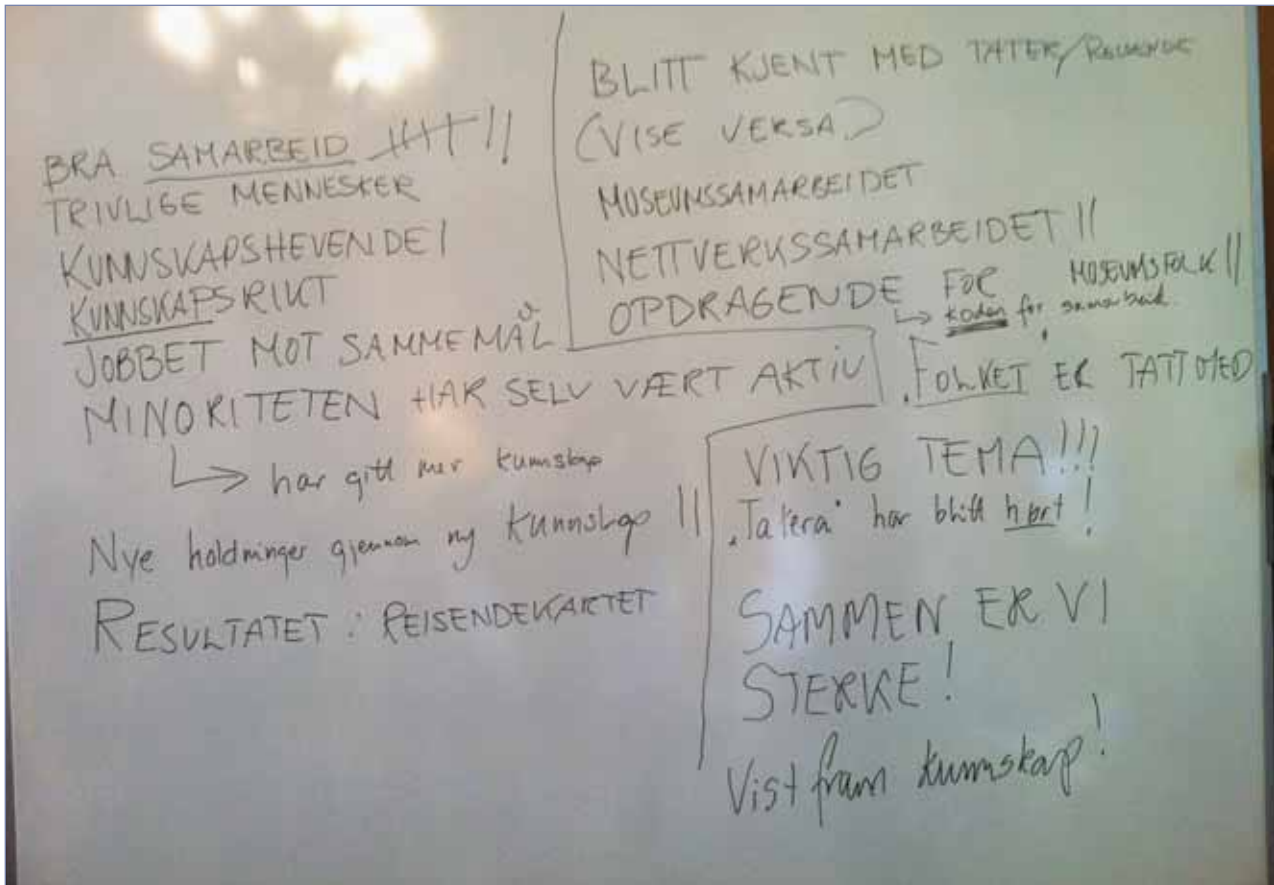 BRA SAMARBEID |||| ||
TRIVLIGE MENNESKER
KUNNSKAPSHEVENDE |
KUNNSKAPSRIKT
JOBBET MOT SAMME MÅL
MINORITETEN HAR SELV VÆRT AKTIV
↳ har gitt mer kunnskap
Nye holdninger gjennom ny kunnskap ||
RESULTATET: REISENDEKARTET
BLITT KJENT MED TATER/REISENDE
(VISE VERSA)
MUSEUMSSAMARBEIDET
NETTVERKSSAMARBEIDET ||
OPDRAGENDE FOR MUSEUMSFOLK ||
↳ koden for samarbeid
FOLKET ER TATT MED
VIKTIG TEMA!!!
"Tatera" har blitt hørt!
SAMMEN ER VI
STERKE!
Vist fram kunnskap!